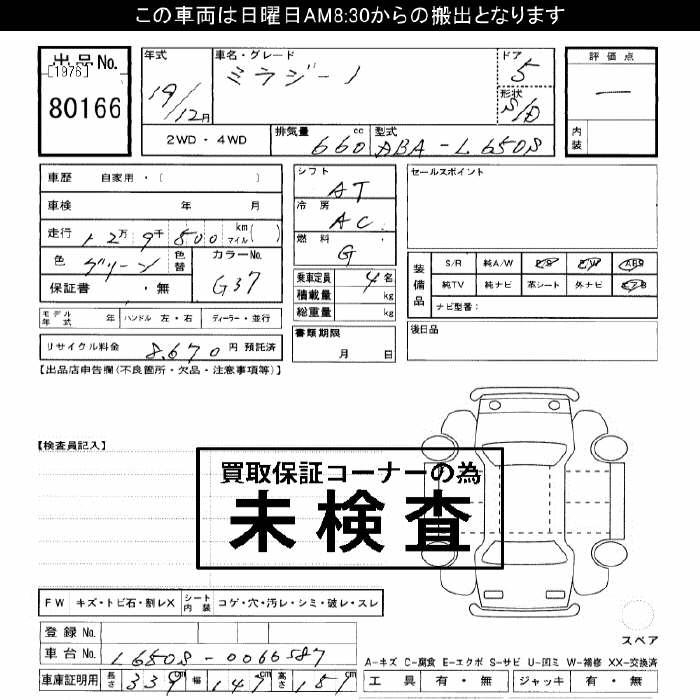 この車両は日曜日AM8:30からの搬出となります
出品No.
[1976]
80166
年式
19/12月
車名・グレード
ミラジーノ
ドア
5
形状
S/D
2WD・4WD
排気量
660cc
型式
ABA-L650S
評価点
一
内装
車歴 自家用・( )
車検 年 月
走行 12万9千800 km マイル( )
色 グリーン 色替 カラーNo. G37
保証書 ・無
モデル年式 年 ハンドル 左・右 ディーラー・並行
リサイクル料金 8,670 円 預託済
シフト
AT
冷房
AC
燃料
G
乗車定員 4名
積載量 kg
総重量 kg
書類期限
月 日
セールスポイント
装備品
S/R 純A/W P/S P/W ABS
純TV 純ナビ 革シート 外ナビ エアB
ナビ型番:
後日品
【出品店申告欄(不良箇所・欠品・注意事項等)】
【検査員記入】
買取保証コーナーの為
未検査
FW キズ・トビ石・割レX シート内装 コゲ・穴・汚レ・シミ・破レ・スレ
登録No.
車台No. L650S-0066587
車庫証明用 長さ 339cm 幅 147cm 高さ 151cm
スペア
A-キズ C-腐食 E-エクボ S-サビ U-凹ミ W-補修 XX-交換済
工具 有・無 ジャッキ 有・無